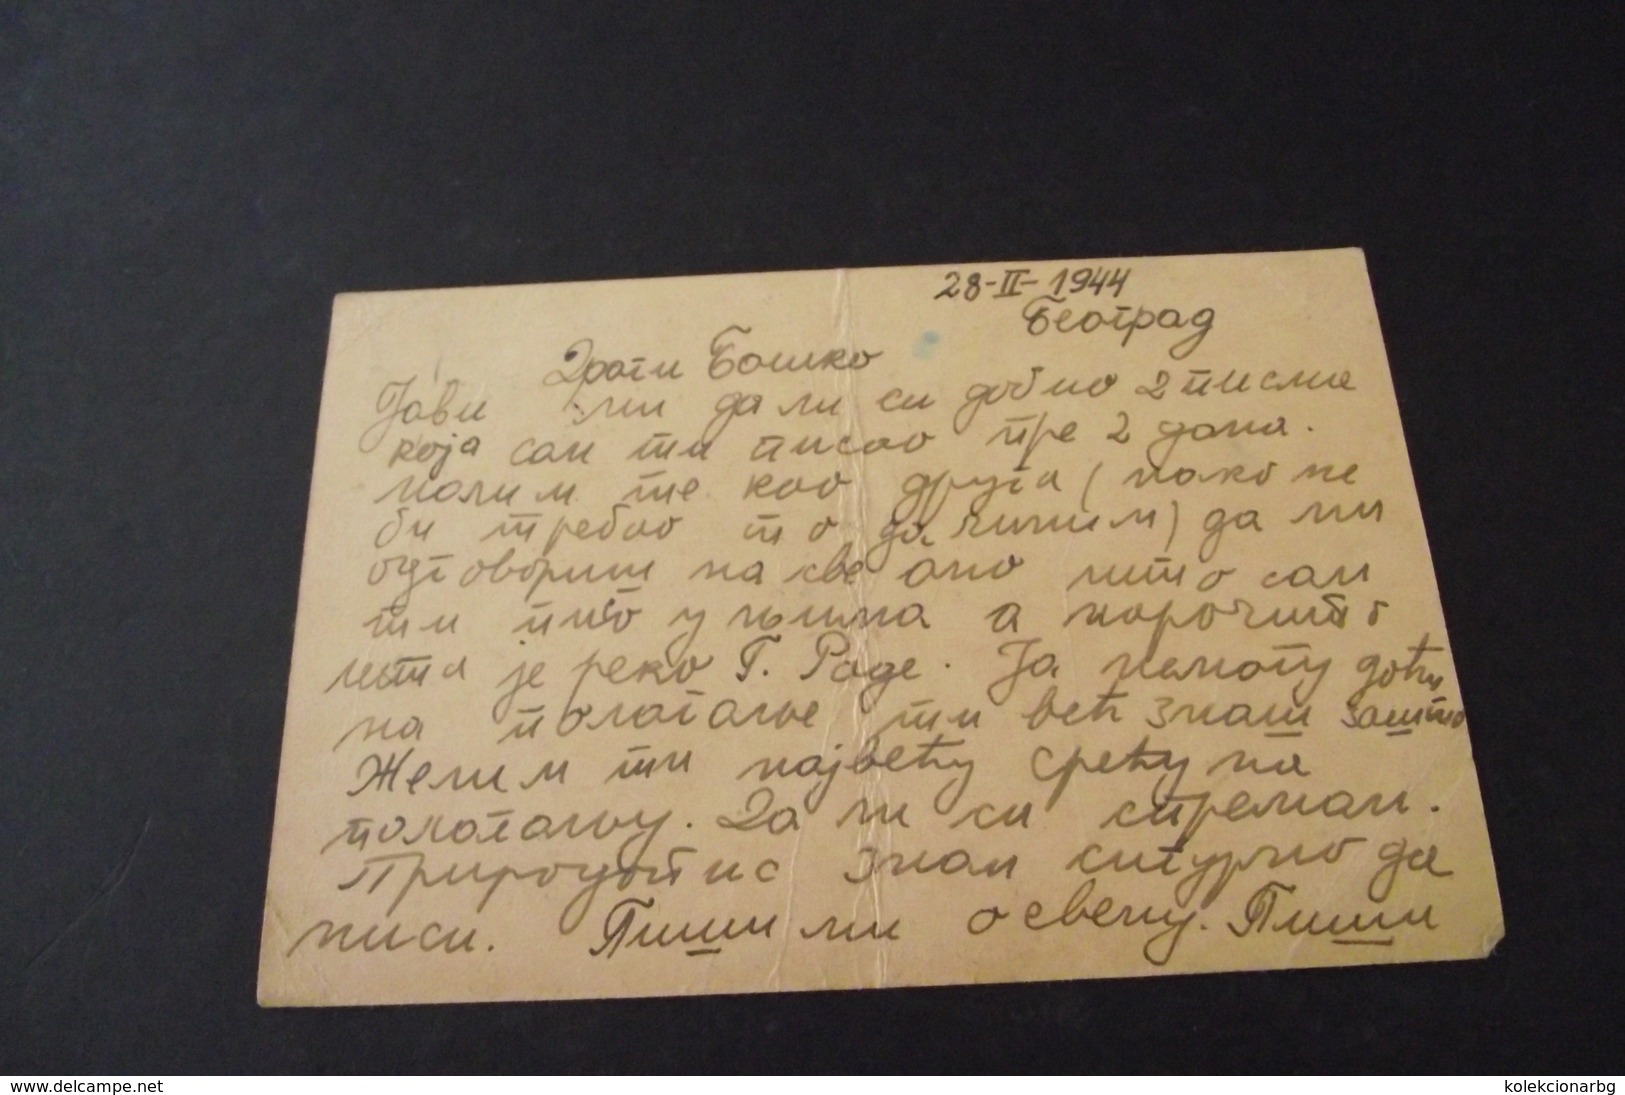 28-II-1944
Београд
Драги Бошко
Јави ми да ли си добио 2 писма
која сам ти писао пре 2 дана.
Молим те као друга (иако не
би требао то да чиним) да ми
одговориш на све оно што сам
ти пито у њима а нарочито
шта је реко Г. Раде. Ја немогу доћи
на полагање ти већ знаш зашто
Желим ти највећу срећу на
полагању. Да ли си спреман.
Природопис знам сигурно да
ниси. Пиши ми о свему. Пиши
www.delcampe.net
kolekcionarbg